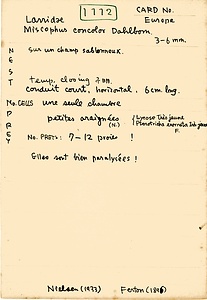 1772 CARD No.
Larridae Europe
Miscophus concolor Dahlbom.
3-6 mm.
NEST sur un champ sablonneux.
temp. closing + on.
conduit court, horizontal, 6cm long.
No. CELLS une seule chambre
PREY petites araignées (N.) { Lycose très jeune
F.
No. PREYS: 7-12 proies !
Elles sont bien paralysées !
Nielsen (1933) Ferton (1896)